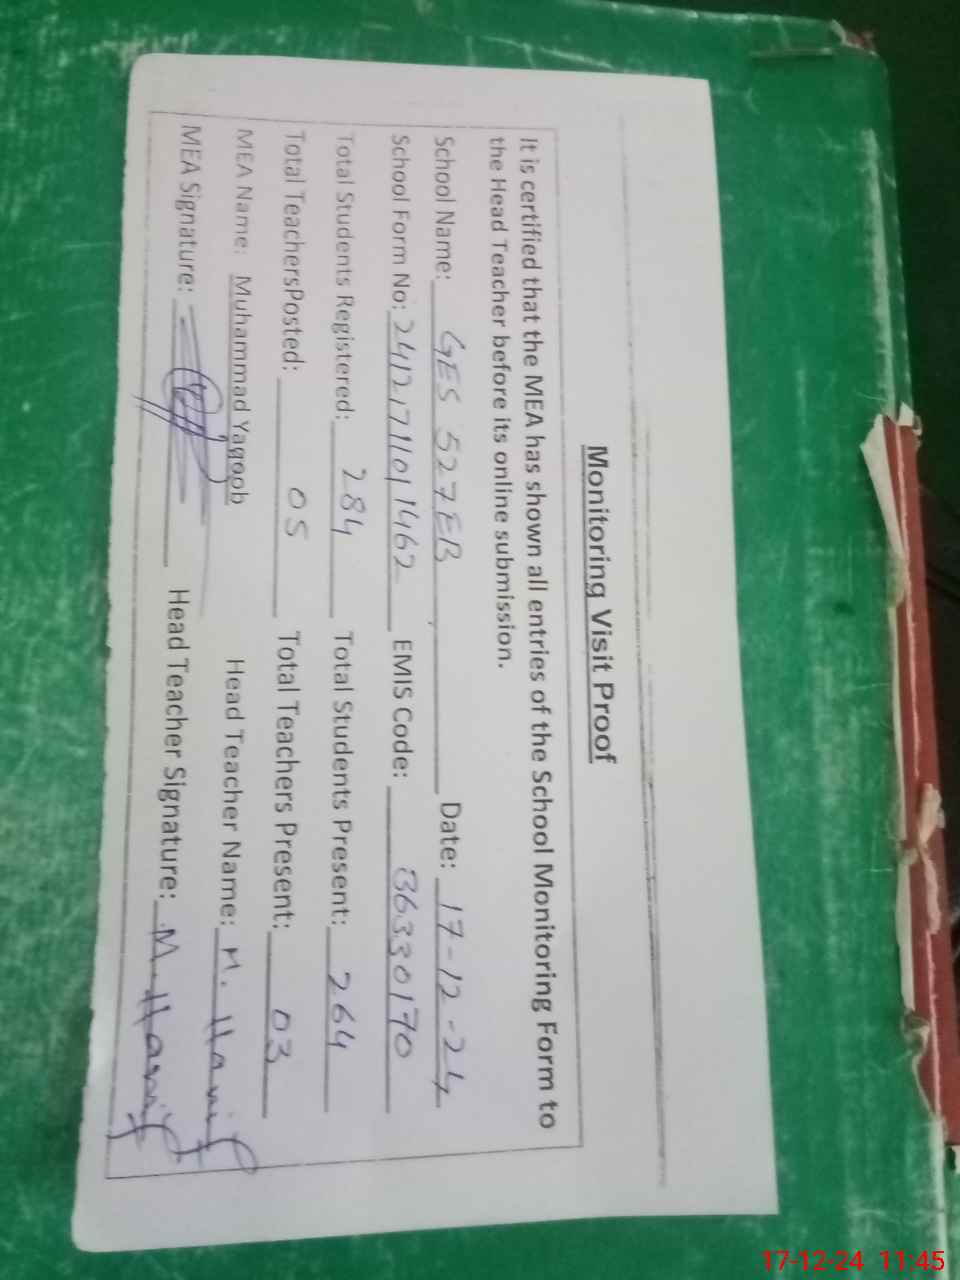 Monitoring Visit Proof
It is certified that the MEA has shown all entries of the School Monitoring Form to
the Head Teacher before its online submission.
School Name: GES 527EB Date: 17-12-24
School Form No: 24121711011462 EMIS Code: 36330170
Total Students Registered: 284 Total Students Present: 264
Total TeachersPosted: 05 Total Teachers Present: 03
MEA Name: Muhammad Yaqoob Head Teacher Name: M. Hanif
MEA Signature: Head Teacher Signature: M. Hanif
17-12-24 11:45